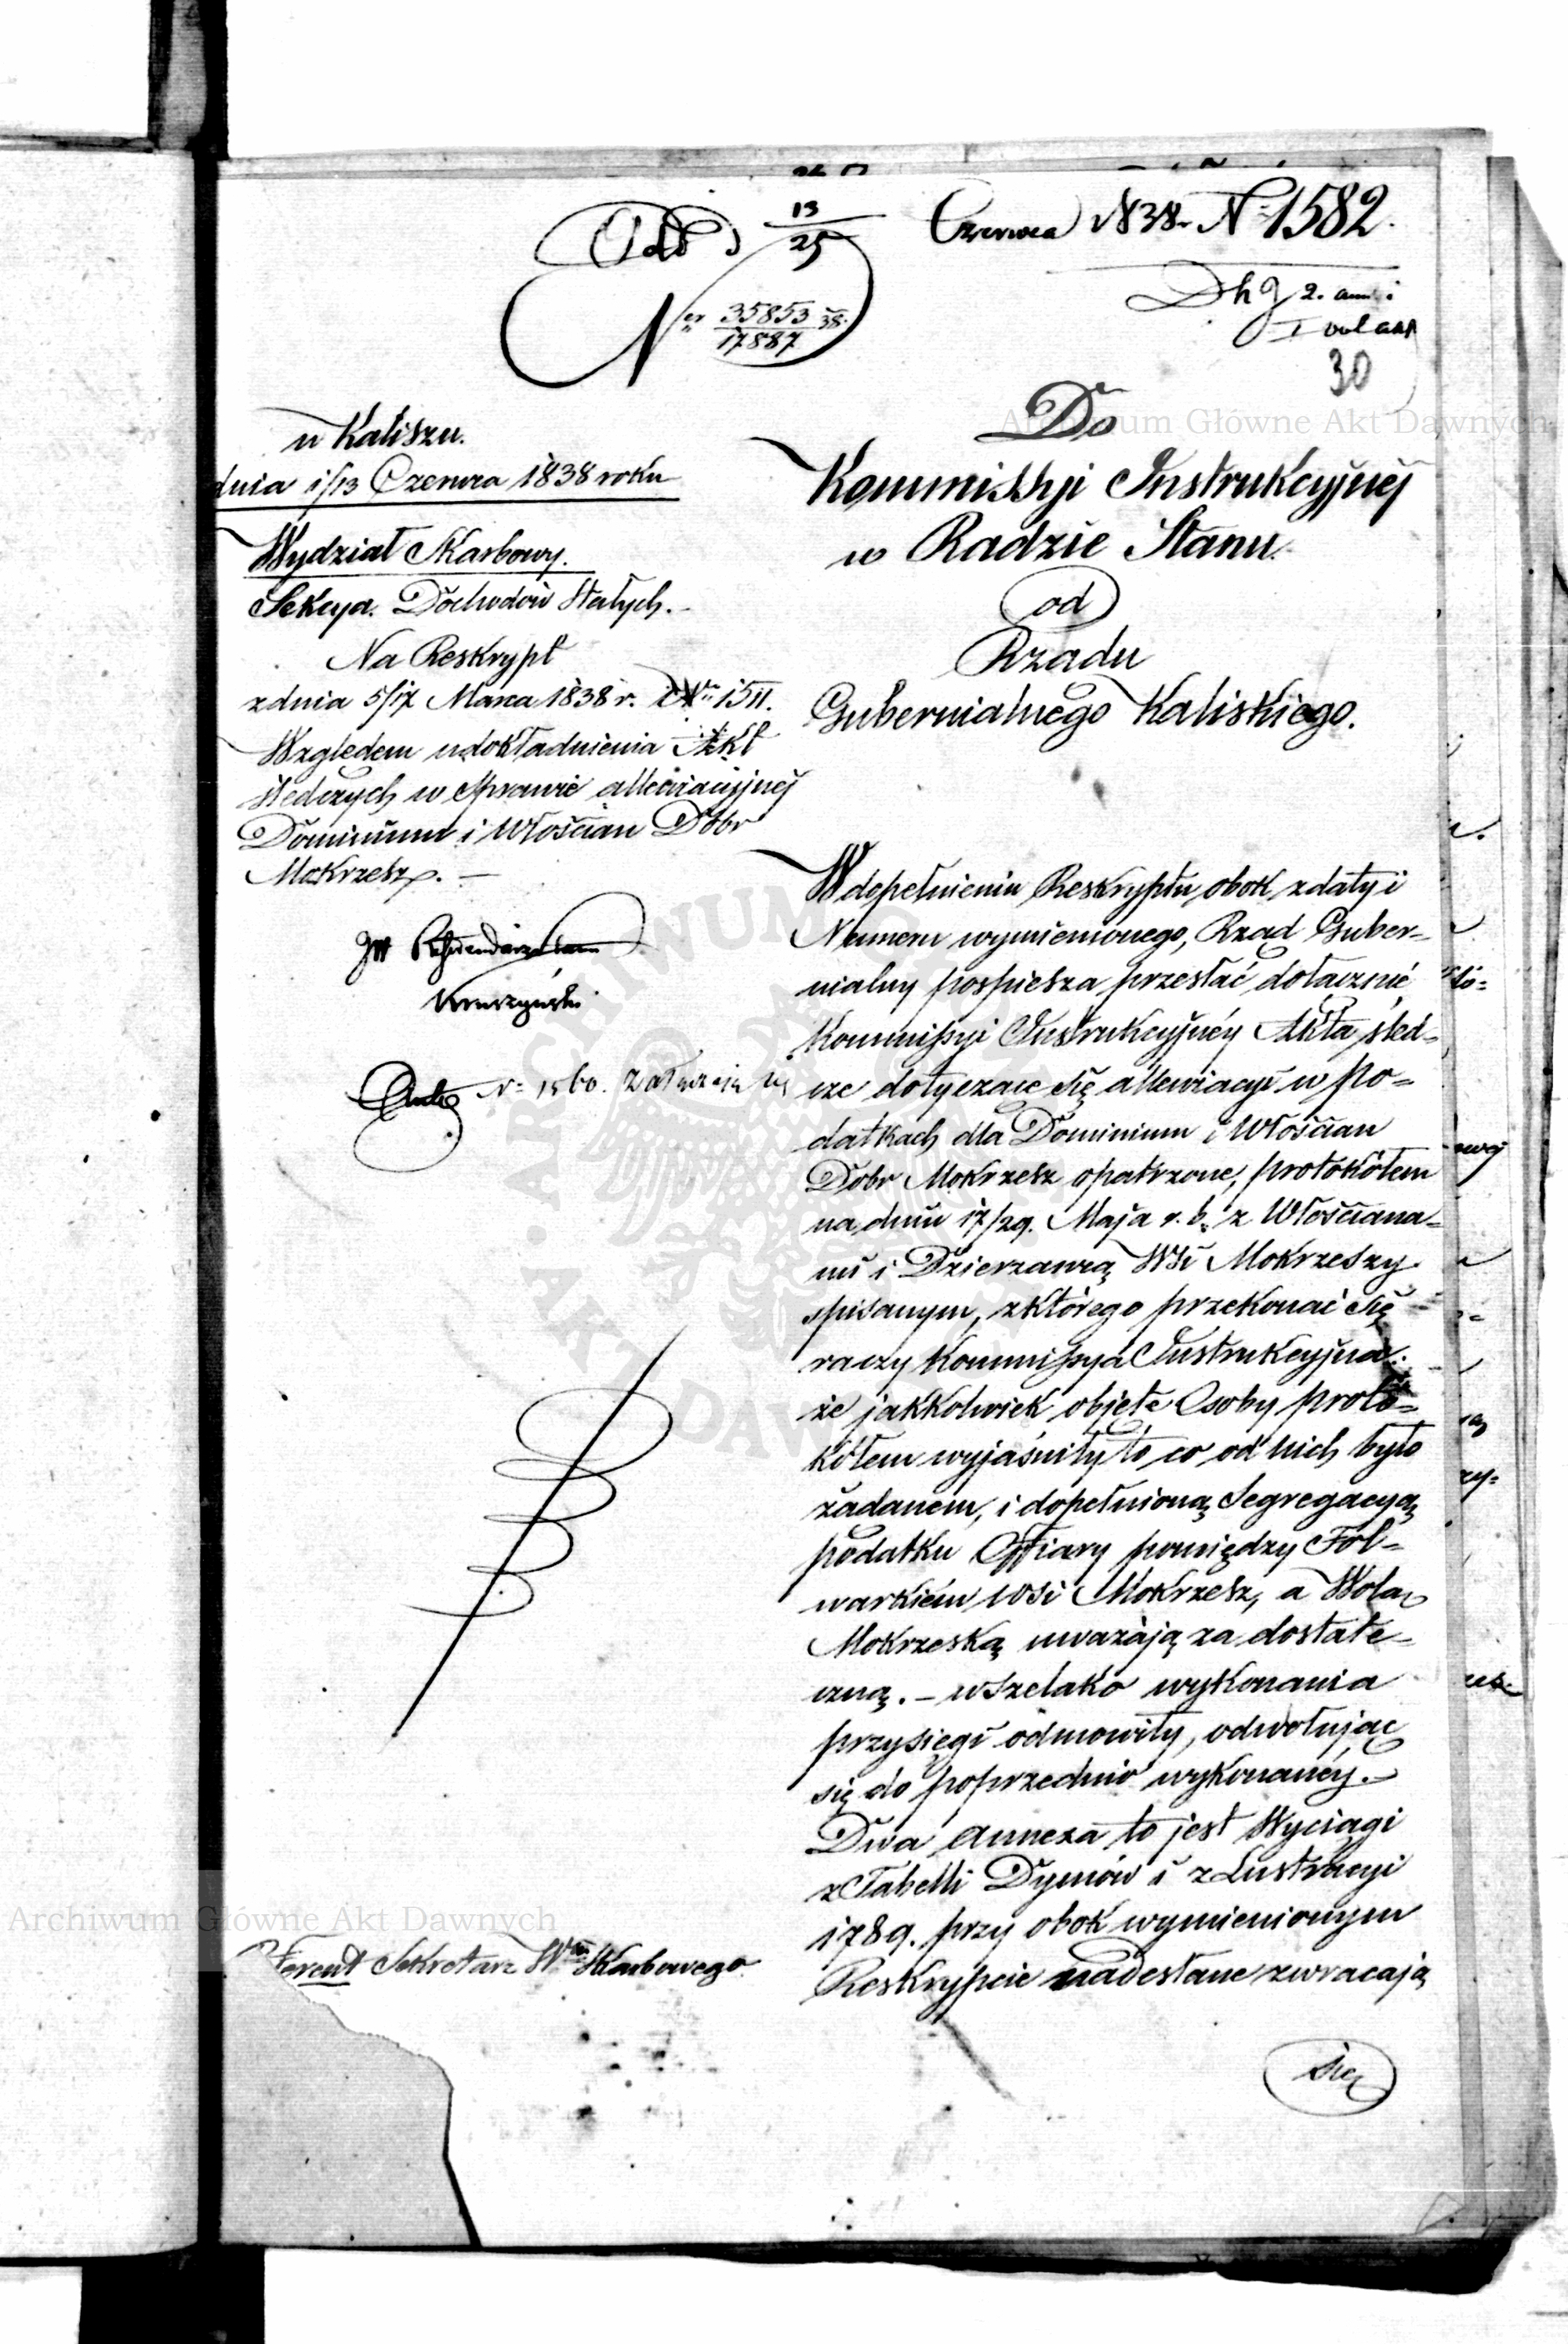 Odd 13/25 Czerwca 1838 N 1582.
Ner 35853/17887 38.
Dhg 2.
I vol
30
w Kaliszu.
dnia 1/13 Czerwca 1838 roku
Wydział Skarbowy.
Sekcya. Dochodów Stałych.
Na Reskrypt
z dnia 5/17 Marca 1838 r. N 1511.
Względem udokładnienia Akt
śledczych w Sprawie allewiacyjnej
Dominium i Włościan Dóbr
Mokrzesz. —
JW Referendarz Stanu
Kruszyński
N 1560. załączają się
Referent Sekretarz Włu Skarbowego
Do
Kommissyi Instrukcyjnej
w Radzie Stanu
od
Rządu
Gubernialnego Kaliskiego.
W dopełnieniu Reskryptu obok z daty i
Numeru wymienionego, Rząd Guber=
nialny pospiesza przesłać dołącznie
Kommissyi Instrukcyjnéy Akta śled=
cze dotyczące się allewiacyi w po=
datkach dla Dominium i Włościan
Dóbr Mokrzesz opatrzone, protokółem
na dniu 17/29. Maja r. b. z Włościana=
mi i Dzierzawcą Wsi Mokrzeszy
spisanym, z którego przekonać się
raczy Kommissya Instrukcyjna:
że jakkolwiek objęte Osoby proto=
kółem wyjaśniły to co od nich było
żądanem, i dopełnioną Segregacyą
podatku Offiary pomiędzy Fol=
warkiem wsi Mokrzesz, a Wolą
Mokrzeską uważają za dostate=
czną. — wszelako wykonania
przysięgi odmowiły, odwołując
się do poprzednio wykonanéy. —
Dwa annexa to jest Wyciągi
z Tabelli Dymów i z Lustracyi
1789. przy obok wymienionym
Reskrypcie nadesłane zwracają
się
Archiwum Główne Akt Dawnych
Archiwum Główne Akt Dawnych